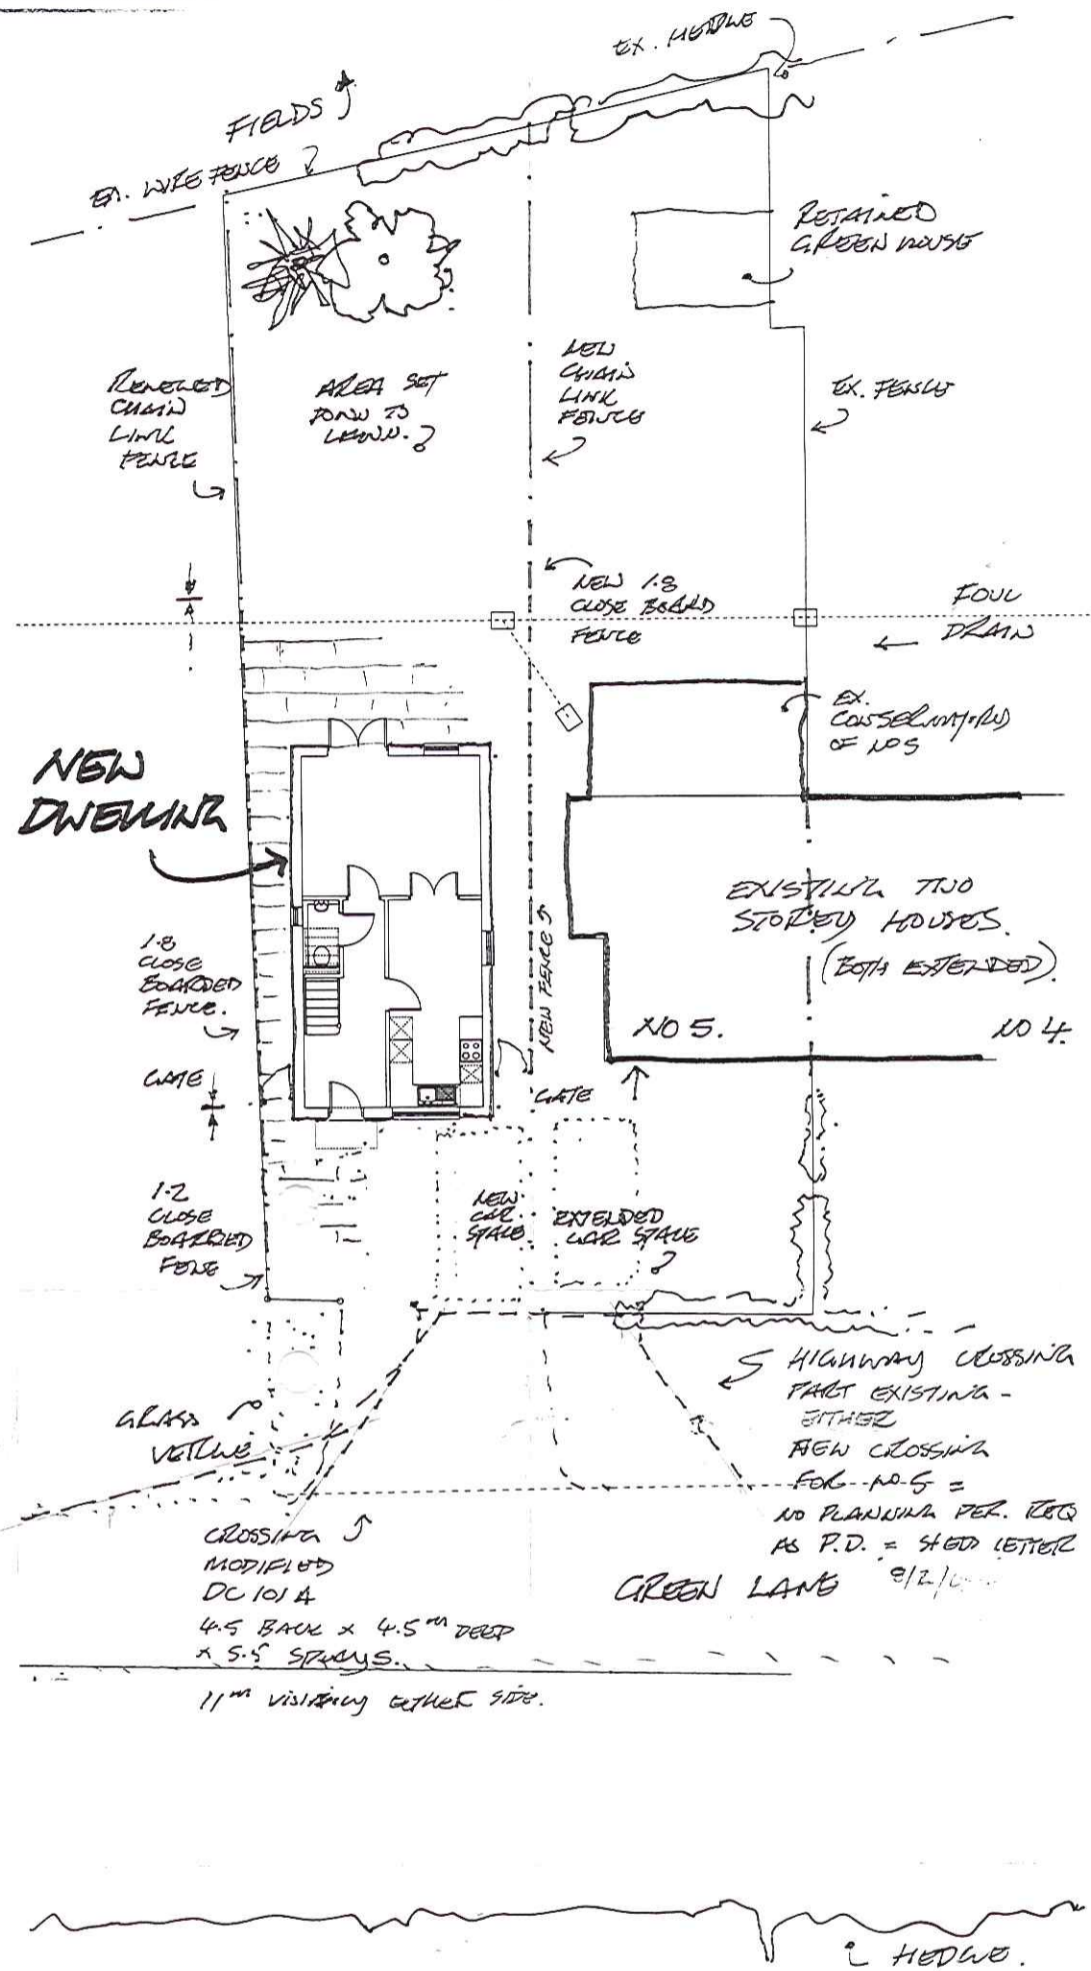 EX. HEDGE
FIELDS
EX. WIRE FENCE
RETAINED
GREEN HOUSE
RENEWED
CHAIN
LINK
FENCE
AREA SET
DOWN TO
LAWN.
NEW
CHAIN
LINK
FENCE
EX. FENCE
NEW 1.8
CLOSE BOARD
FENCE
FOUL
DRAIN
EX.
OF NO5
NEW
DWELLING
EXISTING TWO
STOREY HOUSES.
(BOTH EXTENDED).
1.8
CLOSE
BOARDED
FENCE.
NEW FENCE
NO 5.
NO 4.
GATE
GATE
1.2
CLOSE
BOARDED
FENCE
NEW
CAR
SPACE
EXTENDED
CAR SPACE
GRASS
VERGE
HIGHWAY CROSSING
PART EXISTING -
EITHER
NEW CROSSING
FOR NO-5 =
NO PLANNING PER. REQ
AS P.D. = LETTER
8/2/
CROSSING
MODIFIED
DC 101 A
4.5 BACK x 4.5m DEEP
x 5.5 SPLAYS.
GREEN LANE
11m VISIBILITY EITHER SIDE.
HEDGE.